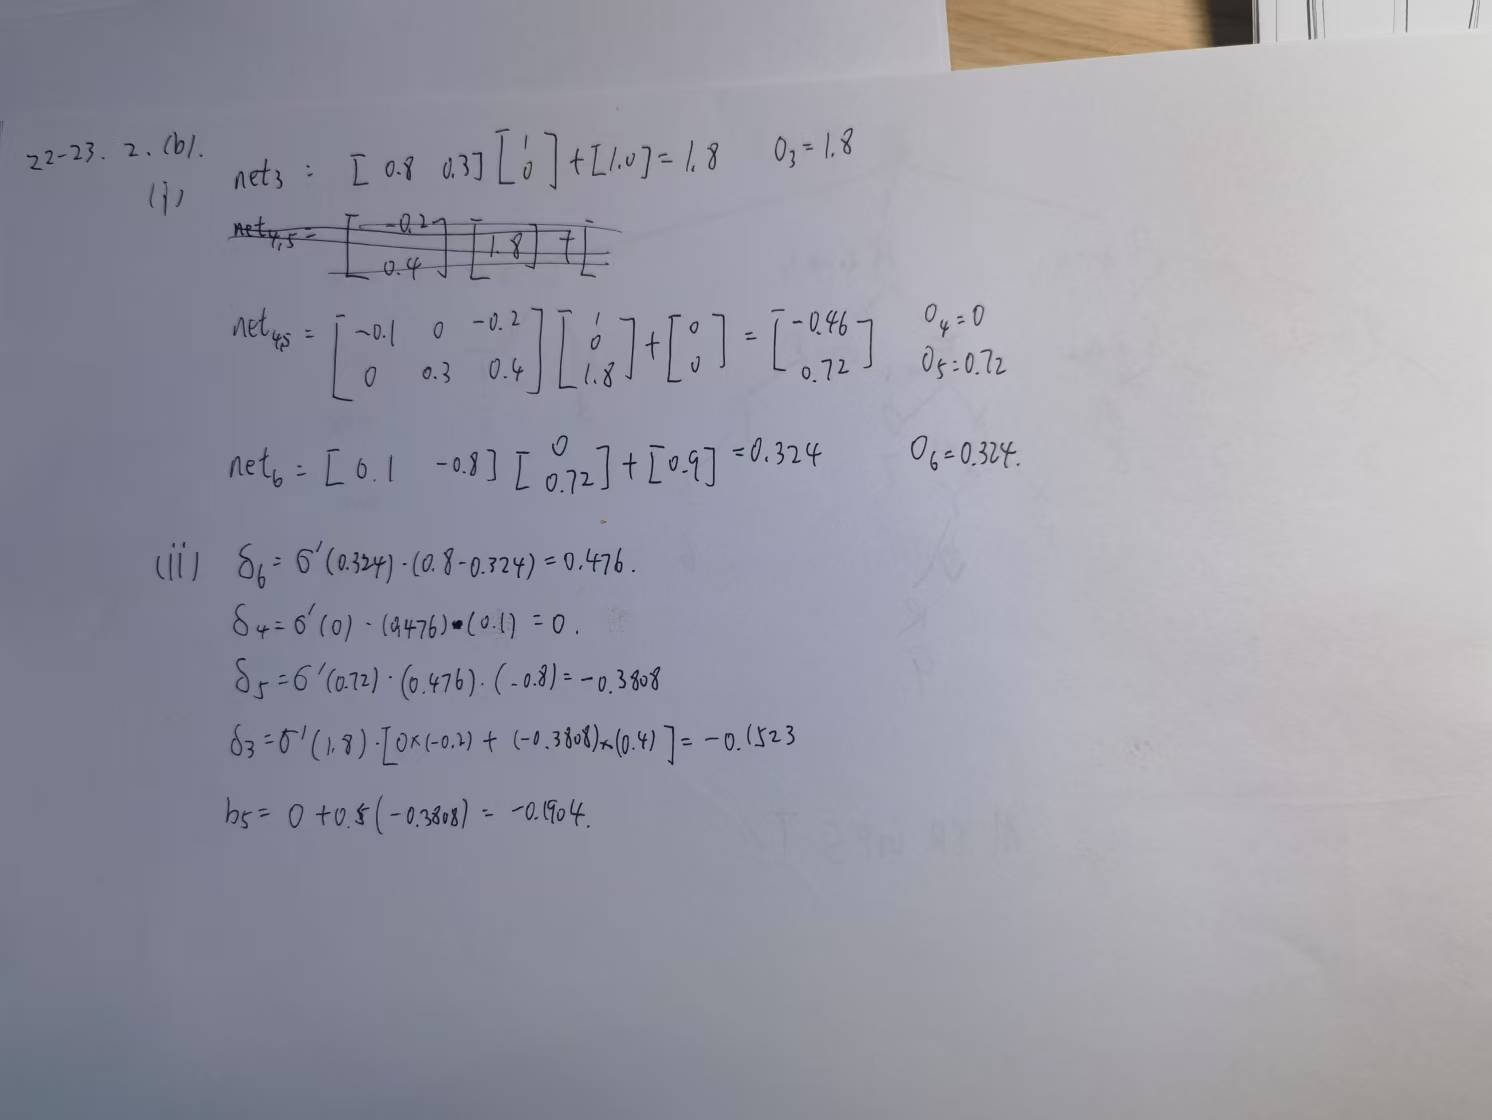 22-23. 2. (b).
(i) net3 : [0.8 0.3] [1 0] + [1.0] = 1.8 O3 = 1.8
net4,5 = [-0.2 0.4] [1.8] + [
net4,5 = [-0.1 0 -0.2 0 0.3 0.4] [1 0 1.8] + [0 0] = [-0.46 0.72] O4=0 O5=0.72
net6 = [0.1 -0.8] [0 0.72] + [0.9] = 0.324 O6=0.324.
(ii) δ6 = σ'(0.324)·(0.8-0.324) = 0.476.
δ4 = σ'(0)·(0.476)·(0.1) = 0.
δ5 = σ'(0.72)·(0.476)·(-0.8) = -0.3808
δ3 = σ'(1.8)·[0×(-0.2) + (-0.3808)×(0.4)] = -0.1523
b5 = 0 + 0.5(-0.3808) = -0.1904.